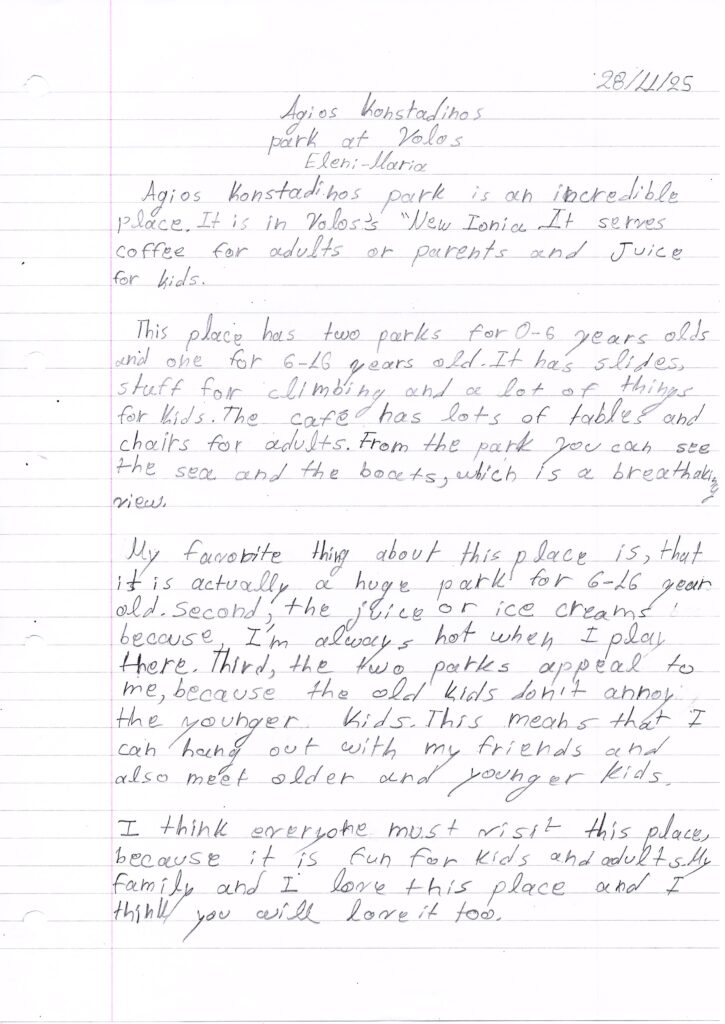 28/11/25
Agios Konstadinos
park at Volos
Eleni-Maria
Agios Konstadinos park is an incredible
place. It is in Volos's "New Ionia. It serves
coffee for adults or parents and Juice
for kids.
This place has two parks for 0-6 years olds
and one for 6-16 years old. It has slides,
stuff for climbing and a lot of things
for kids. The café has lots of tables and
chairs for adults. From the park you can see
the sea and the boats, which is a breathaking
view.
My favorite thing about this place is, that
it is actually a huge park for 6-16 year
old. Second, the juice or ice creams
because, I'm always hot when I play
there. Third, the two parks appeal to
me, because the old kids don't annoy
the younger kids. This means that I
can hang out with my friends and
also meet older and younger kids.
I think everyone must visit this place,
because it is fun for kids and adults. My
family and I love this place and I
think you will love it too.